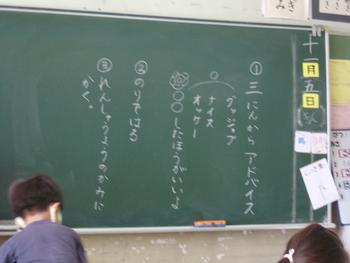 十一月五日
①三にんから アドバイス
グッジョブ
ナイス
オッケー
○○したほうがいいよ
②のりではる
③れんしゅうようのかみに
かく。